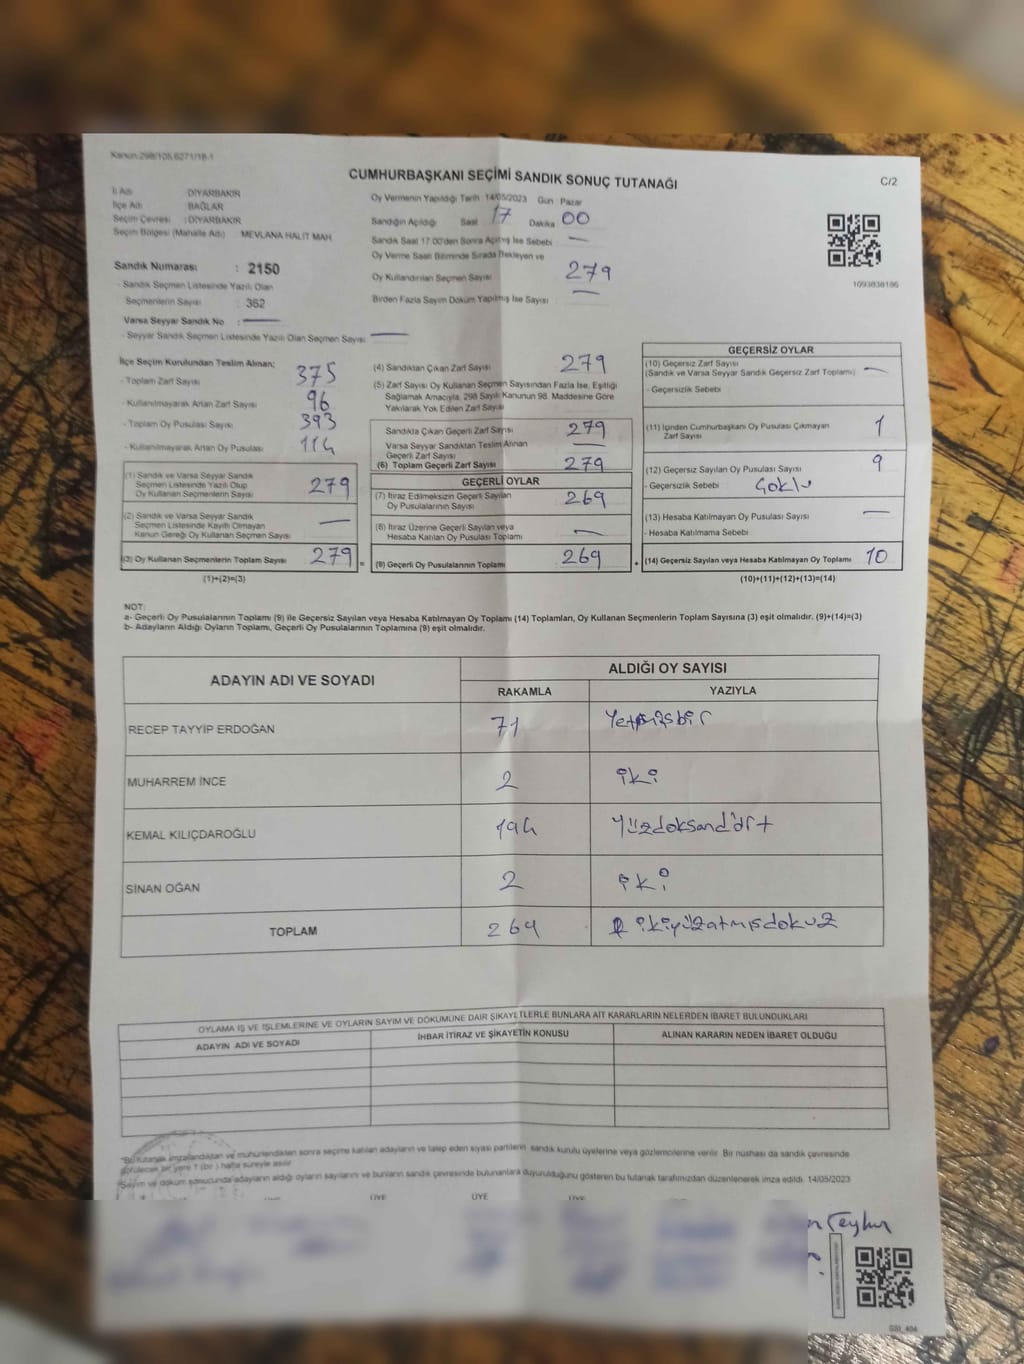 Kanun:298/105,6271/18-1
CUMHURBAŞKANI SEÇİMİ SANDIK SONUÇ TUTANAĞI
C/2
İl Adı DİYARBAKIR
İlçe Adı BAĞLAR
Seçim Çevresi : DİYARBAKIR
Seçim Bölgesi (Mahalle Adı) MEVLANA HALİT MAH
Sandık Numarası : 2150
- Sandık Seçmen Listesinde Yazılı Olan
Seçmenlerin Sayısı : 362
Varsa Seyyar Sandık No :
- Seyyar Sandık Seçmen Listesinde Yazılı Olan Seçmen Sayısı
Oy Vermenin Yapıldığı Tarih 14/05/2023 Gün Pazar
Sandığın Açıldığı Saat 17 Dakika 00
Sandık Saat 17.00'den Sonra Açılmış İse Sebebi —
Oy Verme Saati Bitiminde Sırada Bekleyen ve
Oy Kullandırılan Seçmen Sayısı 279
Birden Fazla Sayım Döküm Yapılmış İse Sayısı —
1093838186
İlçe Seçim Kurulundan Teslim Alınan;
- Toplam Zarf Sayısı 375
- Kullanılmayarak Artan Zarf Sayısı 96
- Toplam Oy Pusulası Sayısı 393
- Kullanılmayarak Artan Oy Pusulası 114
(1) Sandık ve Varsa Seyyar Sandık
Seçmen Listesinde Yazılı Olup
Oy Kullanan Seçmenlerin Sayısı 279
(2) Sandık ve Varsa Seyyar Sandık
Seçmen Listesinde Kayıtlı Olmayan
Kanun Gereği Oy Kullanan Seçmen Sayısı —
(3) Oy Kullanan Seçmenlerin Toplam Sayısı 279
(1)+(2)=(3)
(4) Sandıktan Çıkan Zarf Sayısı 279
(5) Zarf Sayısı Oy Kullanan Seçmen Sayısından Fazla İse, Eşitliği
Sağlamak Amacıyla, 298 Sayılı Kanunun 98. Maddesine Göre
Yakılarak Yok Edilen Zarf Sayısı
Sandıkta Çıkan Geçerli Zarf Sayısı 279
Varsa Seyyar Sandıktan Teslim Alınan
Geçerli Zarf Sayısı —
(6) Toplam Geçerli Zarf Sayısı 279
GEÇERLİ OYLAR
(7) İtiraz Edilmeksizin Geçerli Sayılan
Oy Pusulalarının Sayısı 269
(8) İtiraz Üzerine Geçerli Sayılan veya
Hesaba Katılan Oy Pusulası Toplamı —
(9) Geçerli Oy Pusulalarının Toplamı 269
GEÇERSİZ OYLAR
(10) Geçersiz Zarf Sayısı
(Sandık ve Varsa Seyyar Sandık Geçersiz Zarf Toplamı) —
- Geçersizlik Sebebi
(11) İçinden Cumhurbaşkanı Oy Pusulası Çıkmayan
Zarf Sayısı 1
(12) Geçersiz Sayılan Oy Pusulası Sayısı 9
- Geçersizlik Sebebi Çoklu
(13) Hesaba Katılmayan Oy Pusulası Sayısı —
- Hesaba Katılmama Sebebi
(14) Geçersiz Sayılan veya Hesaba Katılmayan Oy Toplamı 10
(10)+(11)+(12)+(13)=(14)
NOT:
a- Geçerli Oy Pusulalarının Toplamı (9) ile Geçersiz Sayılan veya Hesaba Katılmayan Oy Toplamı (14) Toplamları, Oy Kullanan Seçmenlerin Toplam Sayısına (3) eşit olmalıdır. (9)+(14)=(3)
b- Adayların Aldığı Oyların Toplamı, Geçerli Oy Pusulalarının Toplamına (9) eşit olmalıdır.
ADAYIN ADI VE SOYADI
ALDIĞI OY SAYISI
RAKAMLA YAZIYLA
RECEP TAYYİP ERDOĞAN 71 Yetmişbir
MUHARREM İNCE 2 iki
KEMAL KILIÇDAROĞLU 194 Yüzdoksandört
SİNAN OĞAN 2 iki
TOPLAM 269 ikiyüzatmışdokuz
OYLAMA İŞ VE İŞLEMLERİNE VE OYLARIN SAYIM VE DÖKÜMÜNE DAİR ŞİKAYETLERLE BUNLARA AİT KARARLARIN NELERDEN İBARET BULUNDUKLARI
ADAYIN ADI VE SOYADI İHBAR İTİRAZ VE ŞİKAYETİN KONUSU ALINAN KARARIN NEDEN İBARET OLDUĞU
*Bu tutanak imzalandıktan ve mühürlendikten sonra seçime katılan adayların ve talep eden siyasi partilerin sandık kurulu üyelerine veya gözlemcilerine verilir. Bir nüshası da sandık çevresinde
görülecek bir yere 1 (bir) hafta süreyle asılır
*Sayım ve döküm sonucunda adayların aldığı oyların sayılarını ve bunların sandık çevresinde bulunanlara duyurulduğunu gösteren bu tutanak tarafımızdan düzenlenerek imza edildi. 14/05/2023
ÜYE ÜYE ÜYE